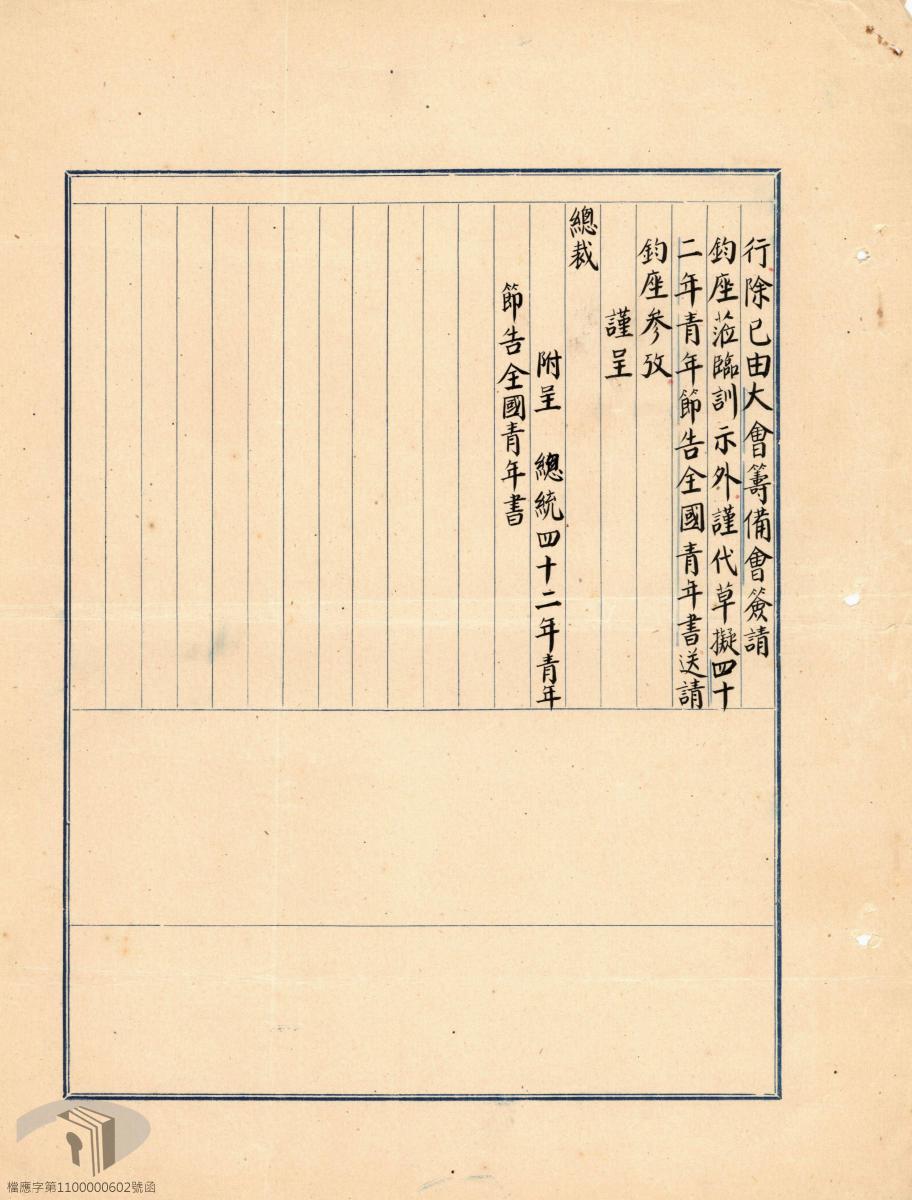 行除已由大會籌備會簽請
鈞座蒞臨訓示外謹代草擬四十
二年青年節告全國青年書送請
鈞座參攷
謹呈
總裁
附呈　總統四十二年青年
節告全國青年書
檔應字第1100000602號函